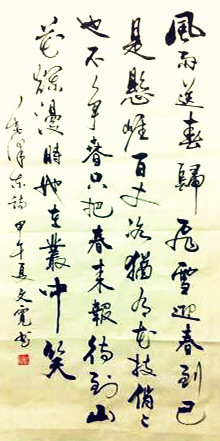 風雨送春歸飛雪迎春到已
是懸崖百丈冰猶有花枝俏〻
也不争春只把春来報待到山
花爛漫時她在叢中笑
毛澤东詩 甲午夏文寬书